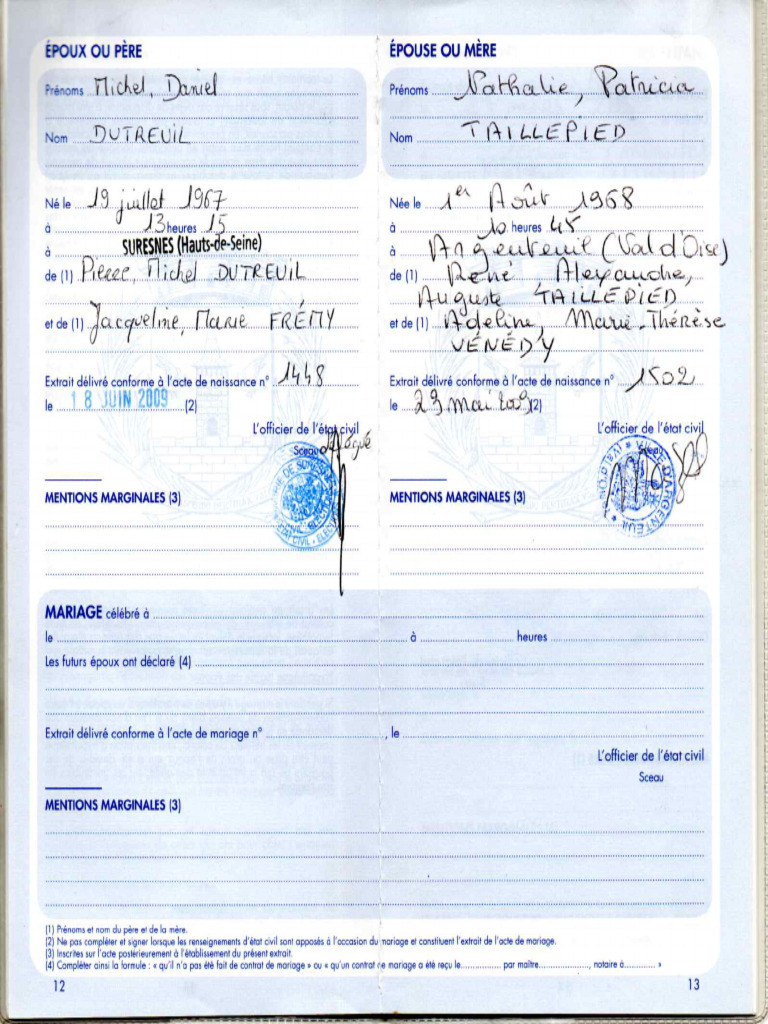 ÉPOUX OU PÈRE
Prénoms Michel, Daniel
Nom DUTREUIL
Né le 19 juillet 1967
à 13 heures 15
à SURESNES (Hauts-de-Seine)
de (1) Pierre, Michel DUTREUIL
et de (1) Jacqueline, Marie FRÉMY
Extrait délivré conforme à l'acte de naissance n° 1448
le 18 JUIN 2009 (2)
L'officier de l'état civil
Sceau
MENTIONS MARGINALES (3)
ÉPOUSE OU MÈRE
Prénoms Nathalie, Patricia
Nom TAILLEPIED
Née le 1er Août 1968
à 10 heures 45
à Argenteuil (Val d'Oise)
de (1) René Alexandre,
Auguste TAILLEPIED
et de (1) Adeline, Marie-Thérèse
VÉNÉDY
Extrait délivré conforme à l'acte de naissance n° 1502
le 23 mai 2009 (2)
L'officier de l'état civil
Sceau
VILLE D'ARGENTEUIL
MENTIONS MARGINALES (3)
MARIAGE célébré à
le à heures
Les futurs époux ont déclaré (4)
Extrait délivré conforme à l'acte de mariage n° , le
L'officier de l'état civil
Sceau
MENTIONS MARGINALES (3)
(1) Prénoms et nom du père et de la mère.
(2) Ne pas compléter et signer lorsque les renseignements d'état civil sont apposés à l'occasion du mariage et constituent l'extrait de l'acte de mariage.
(3) Inscrites sur l'acte postérieurement à l'établissement du présent extrait.
(4) Compléter ainsi la formule : « qu'il n'a pas été fait de contrat de mariage » ou « qu'un contrat de mariage a été reçu le............... par maître..................., notaire à........... »
12
13